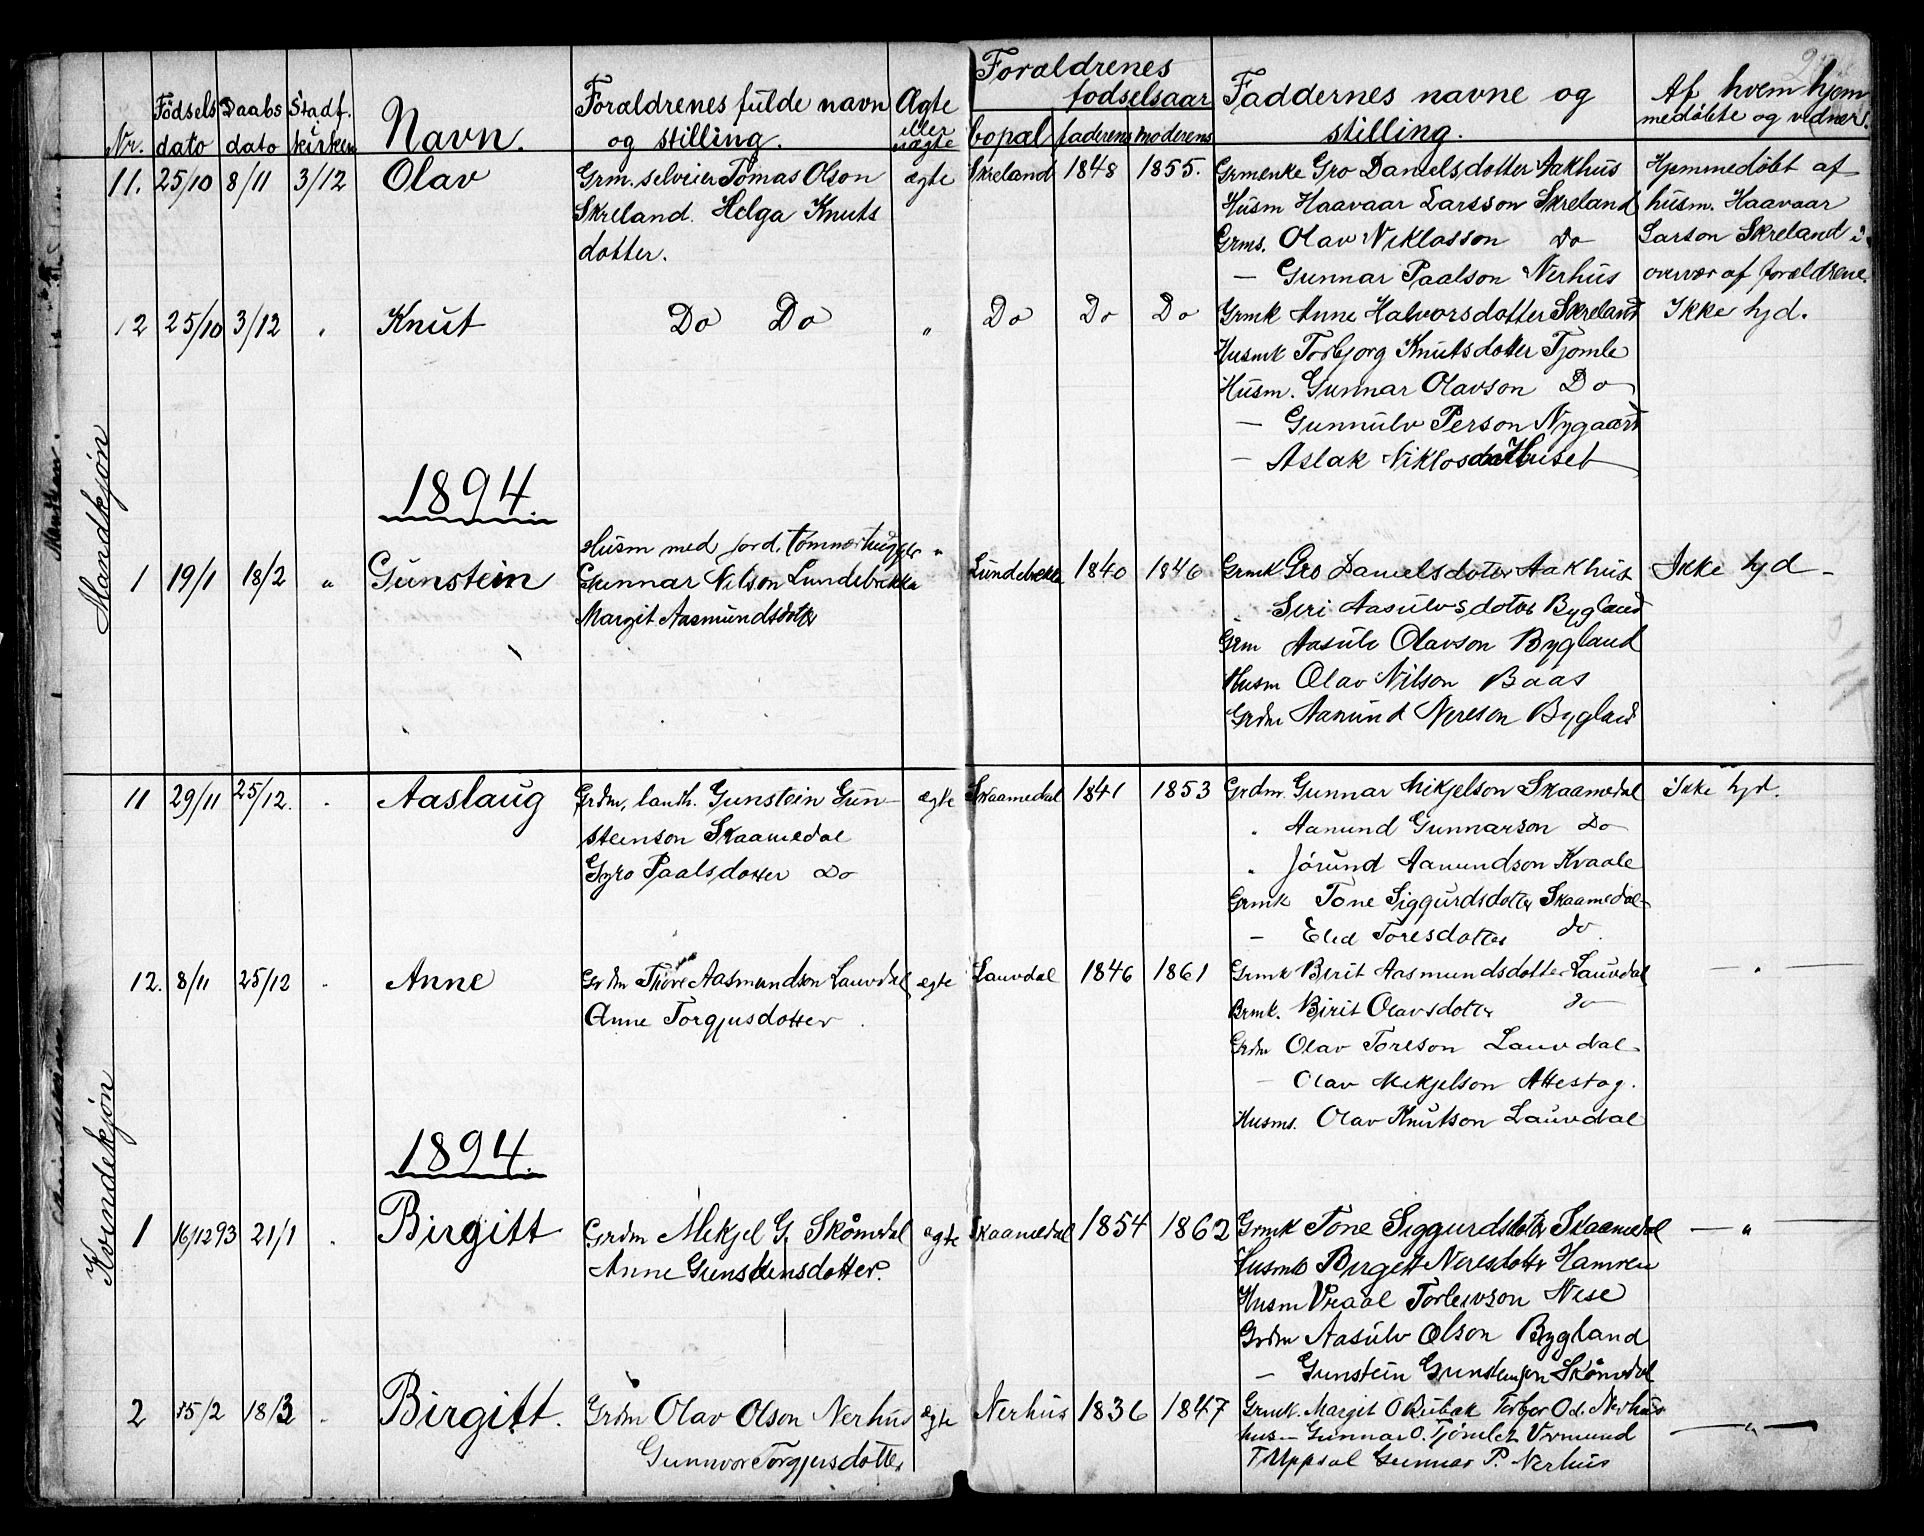 Mandkjøn
Kvindekjøn
Nr. Födsels dato Daabs dato Stadf. kirken Navn. Forældrenes fulde navn og stilling. Ægte eller uægte
Forældrenes fødselsaar
bopæl faderens moderens
Faddernes navne og stilling.
Af hvem hjemmedöbte og vidner.
11. 25/10 8/11 3/12 Olav Grm. selveier Tomas Olson ægte Skreland 1848 1855. Grmenke Gro Danielsdotter Aakhus Hjemmedöbt af
Skreland. Helga Knuts Husm Haavaar Larsson Skreland husm. Haavaar
dotter. Grms. Olav Niklosson Do Larson Skreland i
— Gunnar Paalson Nerhus overvær af forældrene.
12 25/10 3/12 " Knut Do Do " Do Do Do Grmk Anne Halvorsdotter Skreland Ikke hjd.
Husmk Torbjorg Knutsdotter Tjomle
Husm. Gunnar Olavson Do
— Gunnulv Person Nygaard
— Aslak Huset
1894.
Husm med jord, tömmerhugger "
1 19/1 18/2 " Gunstein Gunnar Nilson Lundebekka Lundebekka 1840 1846 Grmk Gro Danielsdoter Aakhus Ikke hjd —
Margit Aasmundsdotter Siri Aasulvsdoter Bygland
Grm Aasulv Olavson Bygland
Husm Olav Nilson Baas
Grdm Aanund Nereson Bygland
11 29/11 25/12. " Aaslaug Grdm, lanh. Gunstein Gun- ægte Skaamedal 1841 1853 Grdm. Gunnar Mikjelson Skaamedal Ikke hjd.
steinson Skaamedal " Aanund Gunnarson Do
Gyro Paalsdotter Do " Jørund Aanundson Kvaale
Grmk Tone Siggurdsdotter Skaamedal
— Toresdotter do.
12. 8/11 25/12 " Anne Grdm Thore Aasmundson Lauvdal ægte Lauvdal 1846 1861 Grmk Birit Aasmundsdotter Lauvdal — " —
Anne Torgjusdotter. Grmk. Birit Olavsdotter do
Grdm Olav Toreson Lauvdal
— Olav Mekjelson Attestog.
Husms. Olav Knutson Lauvdal
1894.
1 16/12 93 21/1 " Birgitt Grdm Mekjel G. Skåmedal ægte Skaamedal 1854 1862 Grmk Tone Siggurdsdotter Skaamedal — " —
Anne Gunsteinsdotter. Husmk Birgitt Neresdotter Hamren
Husm Vraal Torleivson Nese
Grdm Aasulv Olson Bygland
— Gunstein Gunsteinson Skåmedal
2 15/2 18/3 " Birgitt. Grdm Olav Olson Nerhus ægte Nerhus 1836 1847 Grmk. Margit O Torbjor O d. Nerhus — " —
Gunnvor Torgjusdotter hus — Gunnar O. Tjomle Vermund
T Uppsal Gunnar P. Nerhus